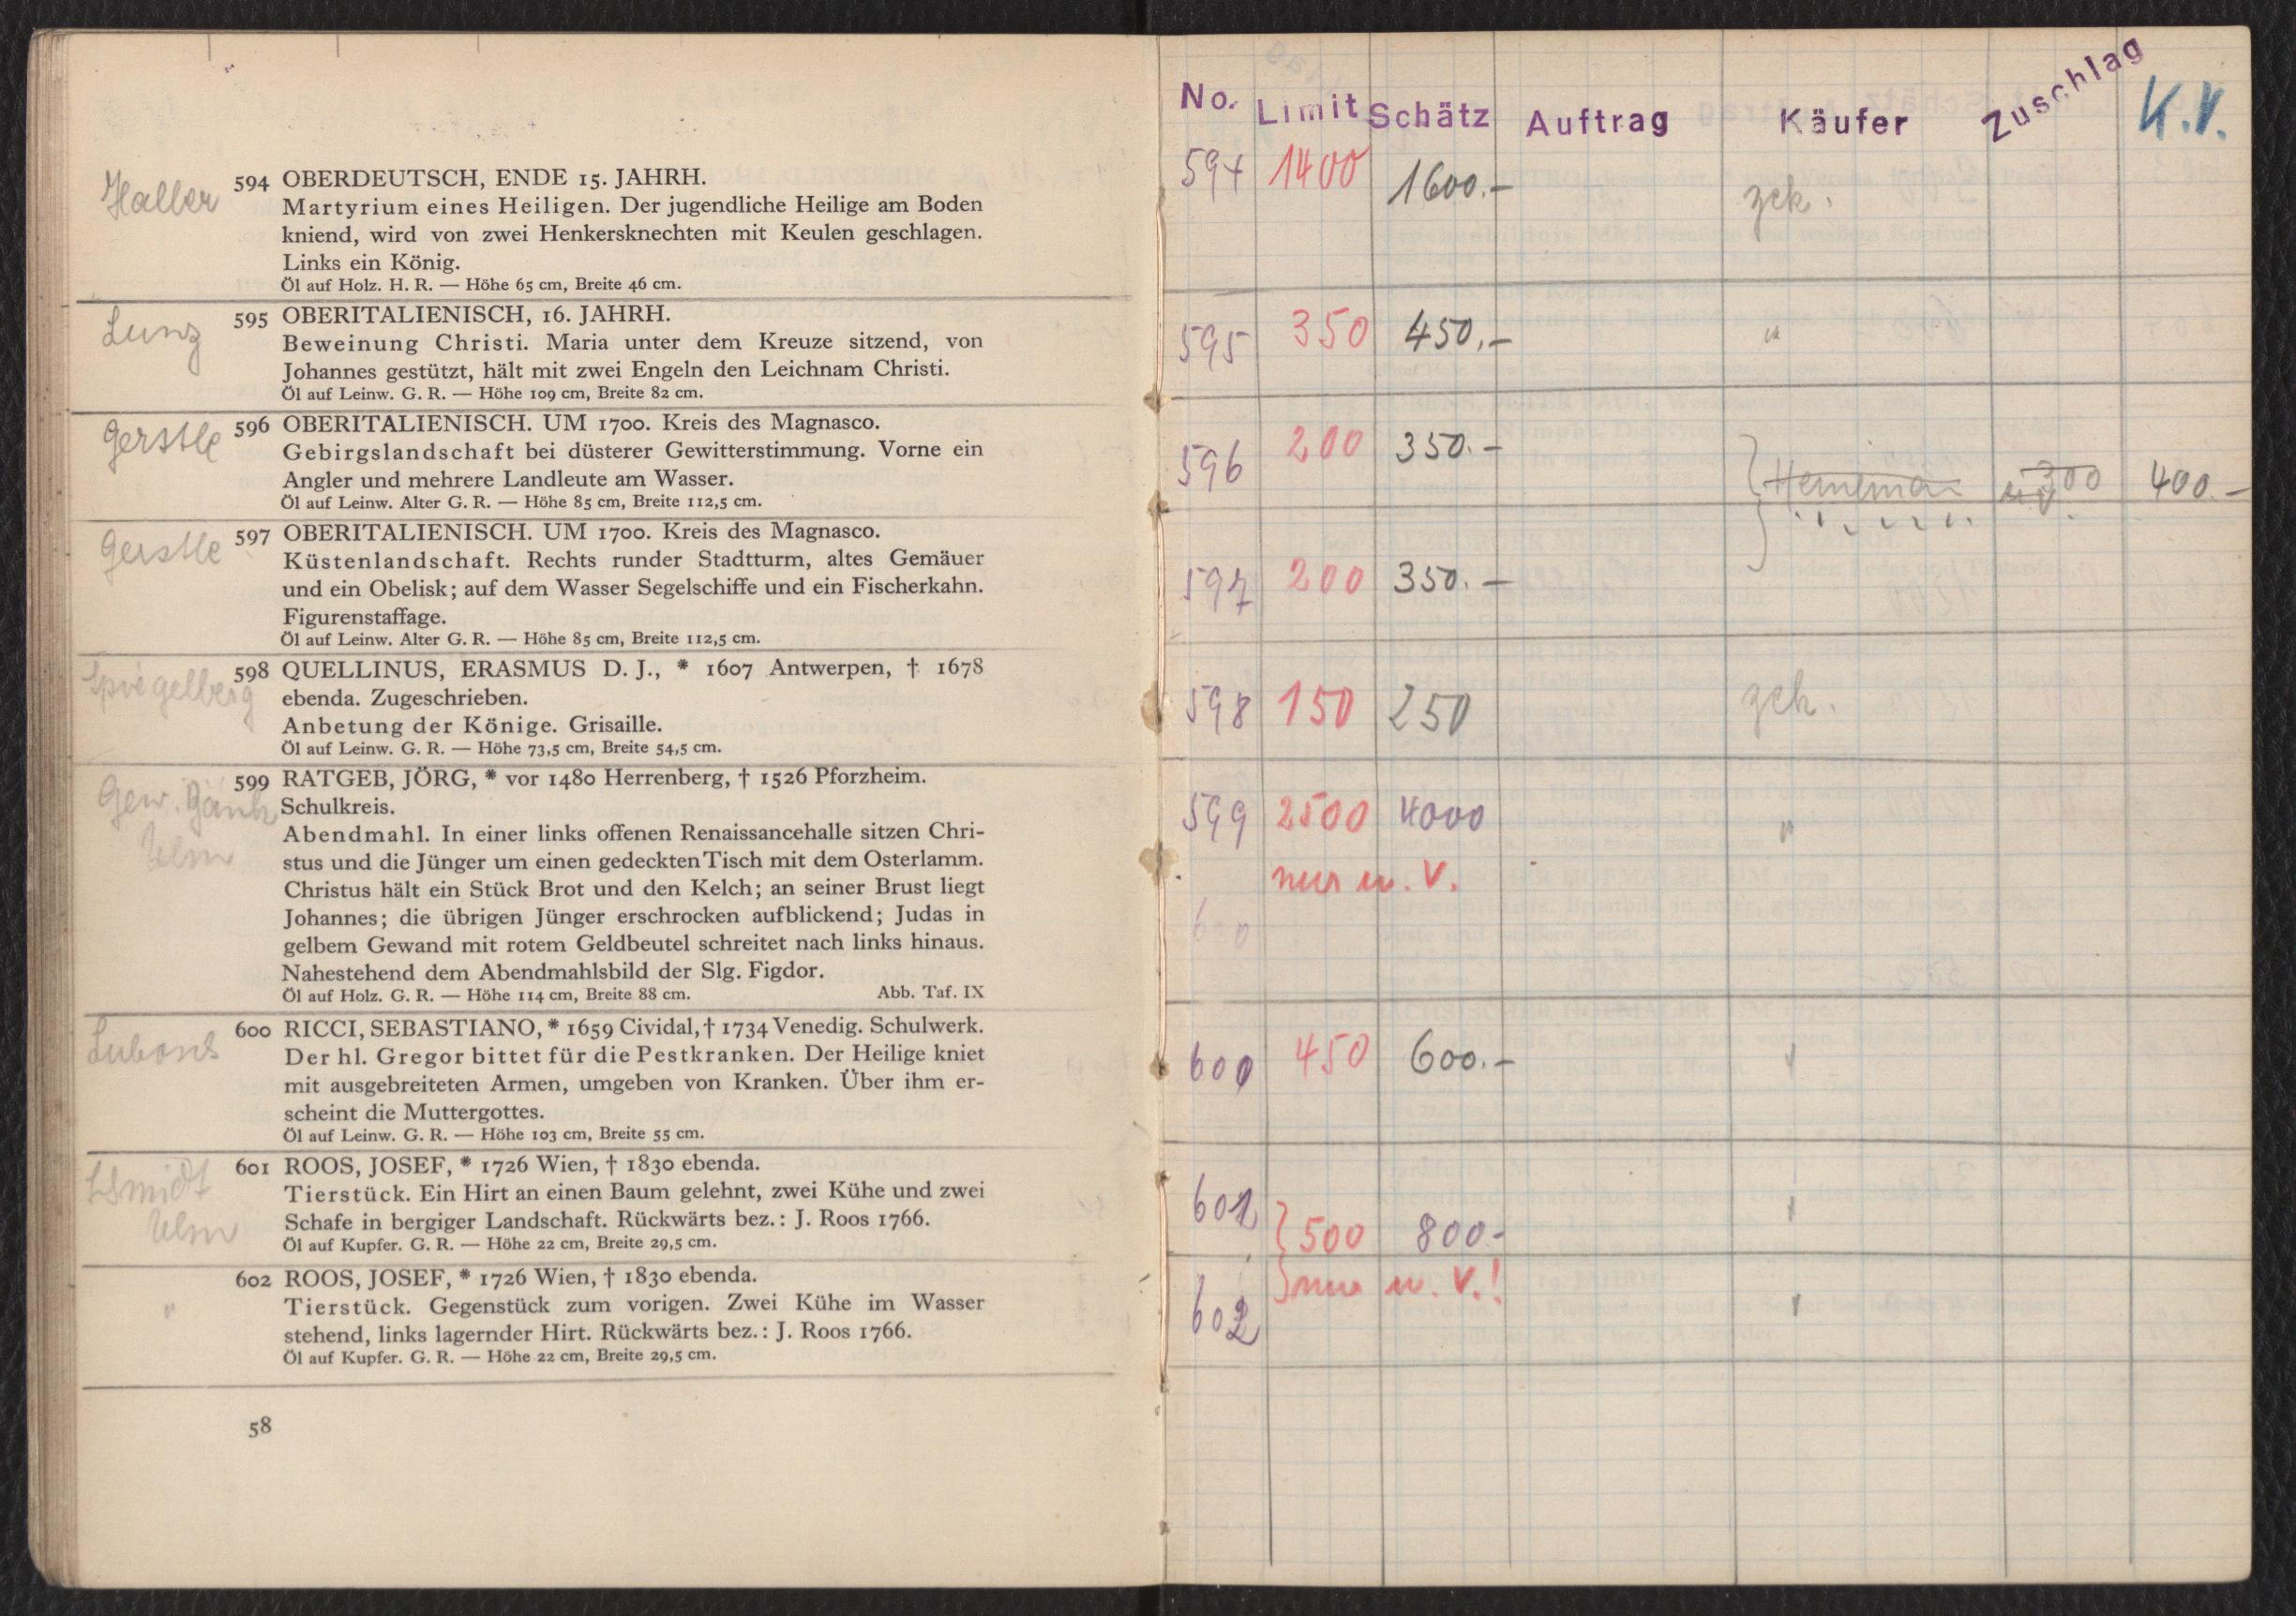 Haller
594 OBERDEUTSCH, ENDE 15. JAHRH.
Martyrium eines Heiligen. Der jugendliche Heilige am Boden
kniend, wird von zwei Henkersknechten mit Keulen geschlagen.
Links ein König.
Öl auf Holz. H. R. — Höhe 65 cm, Breite 46 cm.
Lunz
595 OBERITALIENISCH, 16. JAHRH.
Beweinung Christi. Maria unter dem Kreuze sitzend, von
Johannes gestützt, hält mit zwei Engeln den Leichnam Christi.
Öl auf Leinw. G. R. — Höhe 109 cm, Breite 82 cm.
Gerstle
596 OBERITALIENISCH. UM 1700. Kreis des Magnasco.
Gebirgslandschaft bei düsterer Gewitterstimmung. Vorne ein
Angler und mehrere Landleute am Wasser.
Öl auf Leinw. Alter G. R. — Höhe 85 cm, Breite 112,5 cm.
Gerstle
597 OBERITALIENISCH. UM 1700. Kreis des Magnasco.
Küstenlandschaft. Rechts runder Stadtturm, altes Gemäuer
und ein Obelisk; auf dem Wasser Segelschiffe und ein Fischerkahn.
Figurenstaffage.
Öl auf Leinw. Alter G. R. — Höhe 85 cm, Breite 112,5 cm.
Spiegelberg
598 QUELLINUS, ERASMUS D. J., * 1607 Antwerpen, † 1678
ebenda. Zugeschrieben.
Anbetung der Könige. Grisaille.
Öl auf Leinw. G. R. — Höhe 73,5 cm, Breite 54,5 cm.
Gew. Bank
Ulm
599 RATGEB, JÖRG, * vor 1480 Herrenberg, † 1526 Pforzheim.
Schulkreis.
Abendmahl. In einer links offenen Renaissancehalle sitzen Chri-
stus und die Jünger um einen gedeckten Tisch mit dem Osterlamm.
Christus hält ein Stück Brot und den Kelch; an seiner Brust liegt
Johannes; die übrigen Jünger erschrocken aufblickend; Judas in
gelbem Gewand mit rotem Geldbeutel schreitet nach links hinaus.
Nahestehend dem Abendmahlsbild der Slg. Figdor.
Öl auf Holz. G. R. — Höhe 114 cm, Breite 88 cm. Abb. Taf. IX
600 RICCI, SEBASTIANO, * 1659 Cividal, † 1734 Venedig. Schulwerk.
Der hl. Gregor bittet für die Pestkranken. Der Heilige kniet
mit ausgebreiteten Armen, umgeben von Kranken. Über ihm er-
scheint die Muttergottes.
Öl auf Leinw. G. R. — Höhe 103 cm, Breite 55 cm.
Ulm
601 ROOS, JOSEF, * 1726 Wien, † 1830 ebenda.
Tierstück. Ein Hirt an einen Baum gelehnt, zwei Kühe und zwei
Schafe in bergiger Landschaft. Rückwärts bez.: J. Roos 1766.
Öl auf Kupfer. G. R. — Höhe 22 cm, Breite 29,5 cm.
"
602 ROOS, JOSEF, * 1726 Wien, † 1830 ebenda.
Tierstück. Gegenstück zum vorigen. Zwei Kühe im Wasser
stehend, links lagernder Hirt. Rückwärts bez.: J. Roos 1766.
Öl auf Kupfer. G. R. — Höhe 22 cm, Breite 29,5 cm.
58
No. Limit Schätz Auftrag Käufer Zuschlag K.V.
594 1400 1600.- zck.
595 350 450.- "
596 200 350.- Heineman 300 400.-
597 200 350.-
598 150 250 zck.
599 2500 4000 "
nur u. V.
600
600 450 600.- "
601 500 800.- "
nur u. V.!
602 "